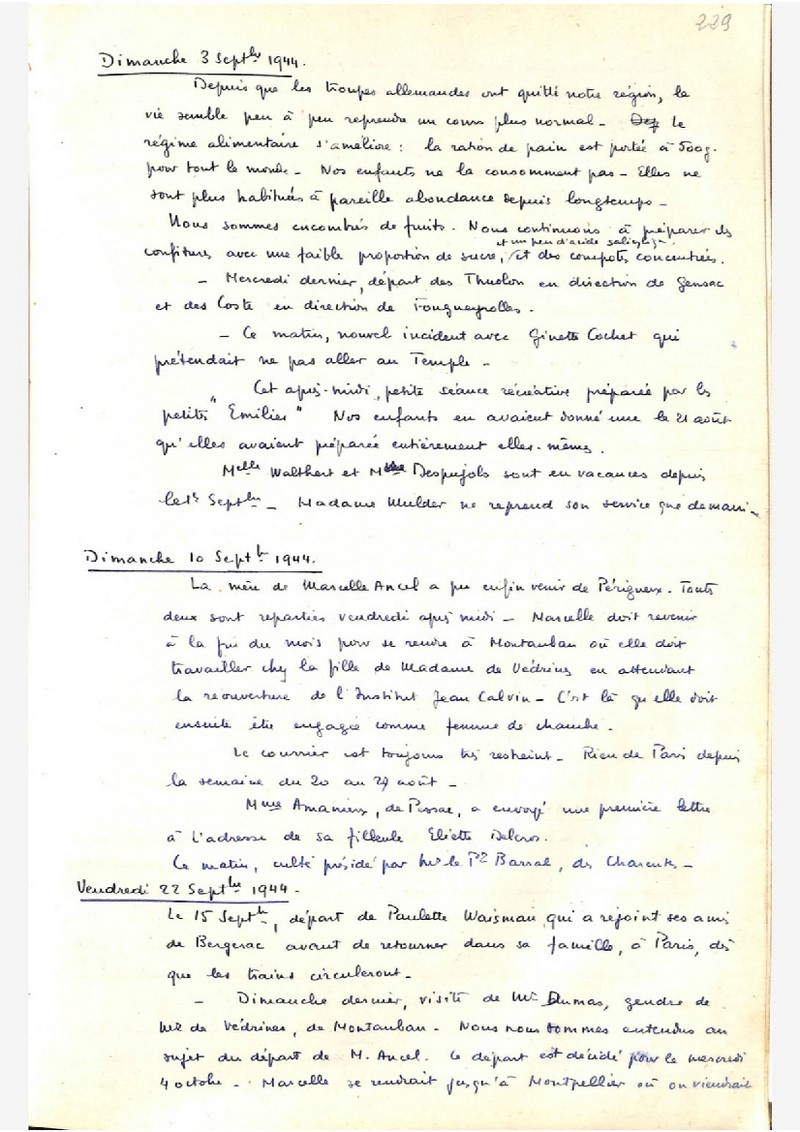 229
Dimanche 3 Septbre 1944.
Depuis que les troupes allemandes ont quitté notre région, la
vie semble peu à peu reprendre un cours plus normal - Dep Le
régime alimentaire s'améliore : la ration de pain est portée à 500g.
pour tout le monde - Nos enfants ne la consomment pas - Elles ne
sont plus habituées à pareille abondance depuis longtemps -
Nous sommes encombrés de fruits. Nous continuons à préparer des
et un peu d'acide salicyliq.
confitures avec une faible proportion de sucre, et des compotes concentrées.
- Mercredi dernier, départ des Thuolon en direction de Gensac
et des Coste en direction de Fougueyrolles.
- Ce matin, nouvel incident avec Ginette Cochet qui
prétendait ne pas aller au Temple -
Cet après-midi, petite séance récréative préparée par les
petits "Emilies" Nos enfants en avaient donné une le 21 août
qu'elles avaient préparée entièrement elles-mêmes.
Melle Walthert et Despujols sont en vacances depuis
le 1er Septbre - Madame Mulder ne reprend son service que demain -
Dimanche 10 Septbre 1944.
La mère de Marcelle Ancel a pu enfin venir de Périgueux. Toutes
deux sont reparties vendredi après midi - Marcelle doit revenir
à la fin du mois pour se rendre à Montauban où elle doit
travailler chez la fille de Madame de Védrines en attendant
la réouverture de l'Institut Jean Calvin - C'est là qu'elle doit
ensuite être engagée comme femme de chambre.
Le courrier est toujours très restreint - Rien de Paris depuis
la semaine du 20 au 27 août -
Mme Amanieux, de Pessac, a envoyé une première lettre
à l'adresse de sa filleule Eliette Delcros.
Ce matin, culte présidé par Mr le Pr Barral, des Charentes -
Vendredi 22 Septbre 1944.
Le 15 Septbre, départ de Paulette Waisman qui a rejoint ses amis
de Bergerac avant de retourner dans sa famille, à Paris, dès
que les trains circuleront -
- Dimanche dernier, visite de Mr Dumas, gendre de
Mr de Védrines, de Montauban - Nous nous sommes entendus au
sujet du départ de M. Ancel. Ce départ est décidé pour le mercredi
4 octobre - Marcelle se rendrait jusqu'à Montpellier où on viendrait